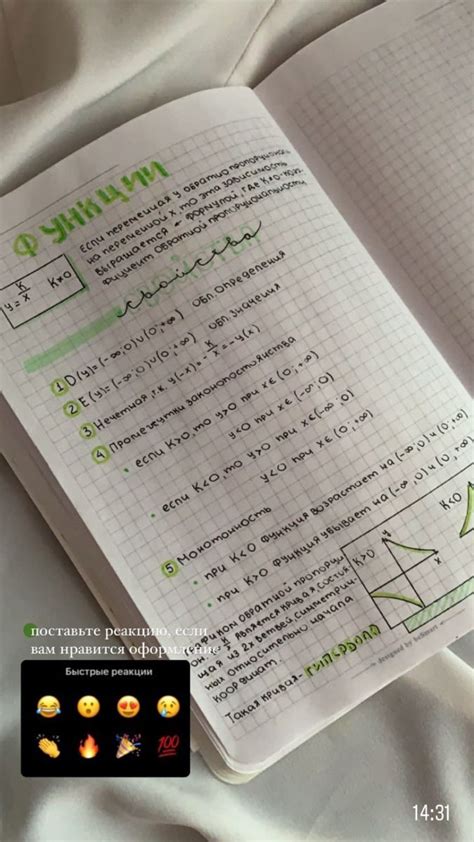 ФУНКЦИИ
Если переменная у обратно пропорциональна
на переменной х, то эта зависимость
выращается формулой, где К≠0 - коэф.
фициент обратной пропорциональности
y = K/x K≠0
свойства
1 D(y)=(-∞;0)∪(0;+∞) обл. определения
2 E(y)=(-∞;0)∪(0;+∞) обл. значения
3 Нечетная т.к. y(-x)=-K/x=-y(x)
4 Промежутки законопостоянства
• если K>0, то y>0 при x∈(0;+∞)
y<0 при x∈(-∞;0)
• если K<0, то y>0 при x∈(-∞;0)
y<0 при x∈(0;+∞)
5 Монотонность
• при K<0 функция возрастает на (-∞;0) и (0;+∞)
• при K>0 функция убывает на (-∞;0) и (0;+∞)
графиком обратной пропорци
является кривая, состоя
щая из 2х ветвей, симметрич-
ных относительно начала
координат.
Такая кривая - гипербола
K>0
y
x
K<0
designed by
поставьте реакцию, если
вам нравится оформление
Быстрые реакции
100
14:31